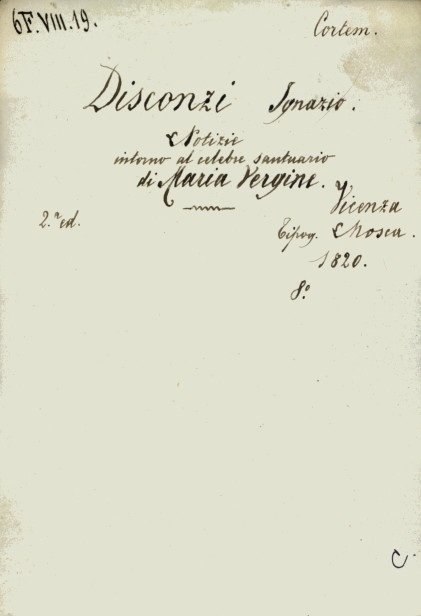 6F.VIII.19.
Cortem.
Disconzi Ignazio.
Notizie
intorno al celebre santuario
di Maria Vergine.
Vicenza
2.ª ed.
Tipog. Mosca.
1820.
8º.
C.